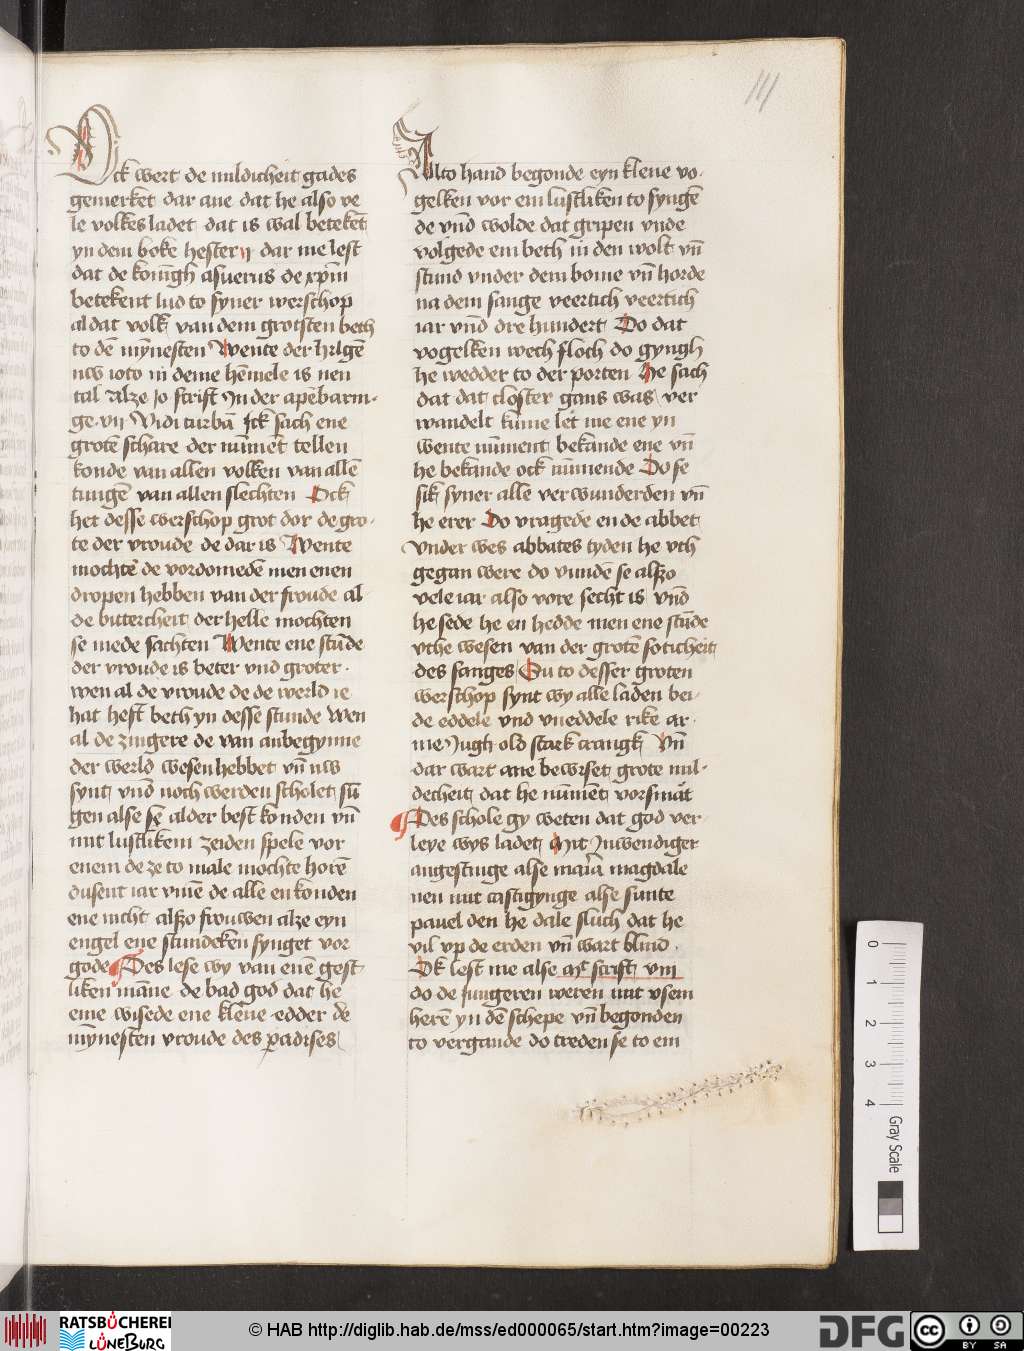 111
Ock wert de mildicheit gades
gemerket dar ane dat he also ve
le volkes ladet dat is wal beteket
yn dem boke hester ij dar me lest
dat de konigh asuerus de xpm̄
betekent lud to syner werschop
al dat volk van dem grotsten beth
to dē mȳnesten Wente der hilgē
nw ioto in deme hēmele is nen
tal Alze Jo scrift Jn der apēbarin-
ge vij Vidi turbā Ick sach ene
grote schare der nūmēt tellen
konde van allen volken van allē
tungē van allen slechten Ock
het desse werschop grot dor de gro-
te der vroude de dar is Wente
mochtē de vordomedē men enen
dropen hebben van der froude al
de bittercheit der helle mochten
se mede sachten Wente ene stūde
der vroude is beter vnd groter
wen al de vroude de de werld ie
hat heft beth yn desse stunde Wen
al de zingere de van anbegynne
der werld wesen hebbet vn̄ nw
synt vnd̄ noch werden scholet sū
gen alse se alder best konden vn̄
mit lustlikem zeiden spele vor
enem de ze to male mochte horē
dusent iar vmē de alle en konden
ene nicht alszo frouwen alze eyn
engel ene stundeken synget vor
gode Des lese wy van enē gest
liken māne de bad god dat he
eme wisede ene klene edder de
mȳnesten vroude des padises
Alto hand begonde eyn klene vo-
gelken vor em lustliken to syngē
de vnd̄ wolde dat gripen vnde
volgede em beth in den wolt vn̄
stund vnder dem bome vn̄ horde
na dem sange veertich veertich
iar vnd̄ dre hundert Do dat
vogelken wech floch do gyngh
he wedder to der porten He sach
dat dat closter gans was ver
wandelt kūme let me ene yn
wente nūment bekande ene vn̄
he bekande ock nūmende Do se
sik syner alle verwunderden vn̄
he erer Do vragede en de abbet
vnder wes abbates tyden he vth
gegan were do vundē se alszo
vele iar also vore secht is vnd̄
he sede he en hedde men ene stūde
vthe wesen van der grotē soticheit
des sanges Su to desser groten
werschop synt wy alle laden bei-
de eddele vnd vneddele rike ar-
me Jugh old stark crangk Vn̄
dar wart ane bewiset grote mil-
decheit dat he nūmēt vorsmāt
Des schole gy weten dat god ver-
leye wys ladet Mit Jnwendiger
angestinge alse maria magdale
nen mit castigynge alse sunte
pauel den he dale sluch dat he
vil vp de erden vn̄ wart blind
Ok lest me alse mt scrift viij
do de jungeren weren mit vsem
herē yn dē schepe vn̄ begonden
to vergande do treden se to em
0
1
2
3
4
Gray Scale
RATSBÜCHEREI
LÜNEBURG
© HAB http://diglib.hab.de/mss/ed000065/start.htm?image=00223
DFG
cc
BY SA